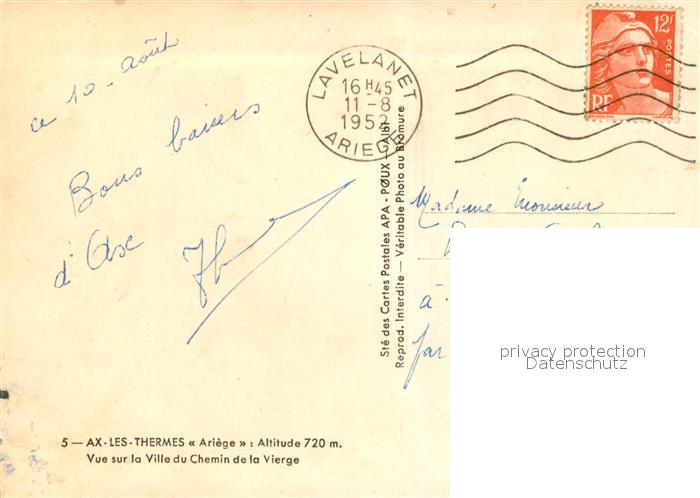 ce 10 - Août
Bons baisers
d'Ax
LAVELANET
16H45
11-8
1952
ARIEGE
12F
POSTES
RF
Sté des Cartes Postales APA - POUX - ALBI
Reprod. Interdite — Véritable Photo au Bromure
Madame Monsieur
à
par
privacy protection
Datenschutz
5 — AX-LES-THERMES « Ariège » : Altitude 720 m.
Vue sur la Ville du Chemin de la Vierge